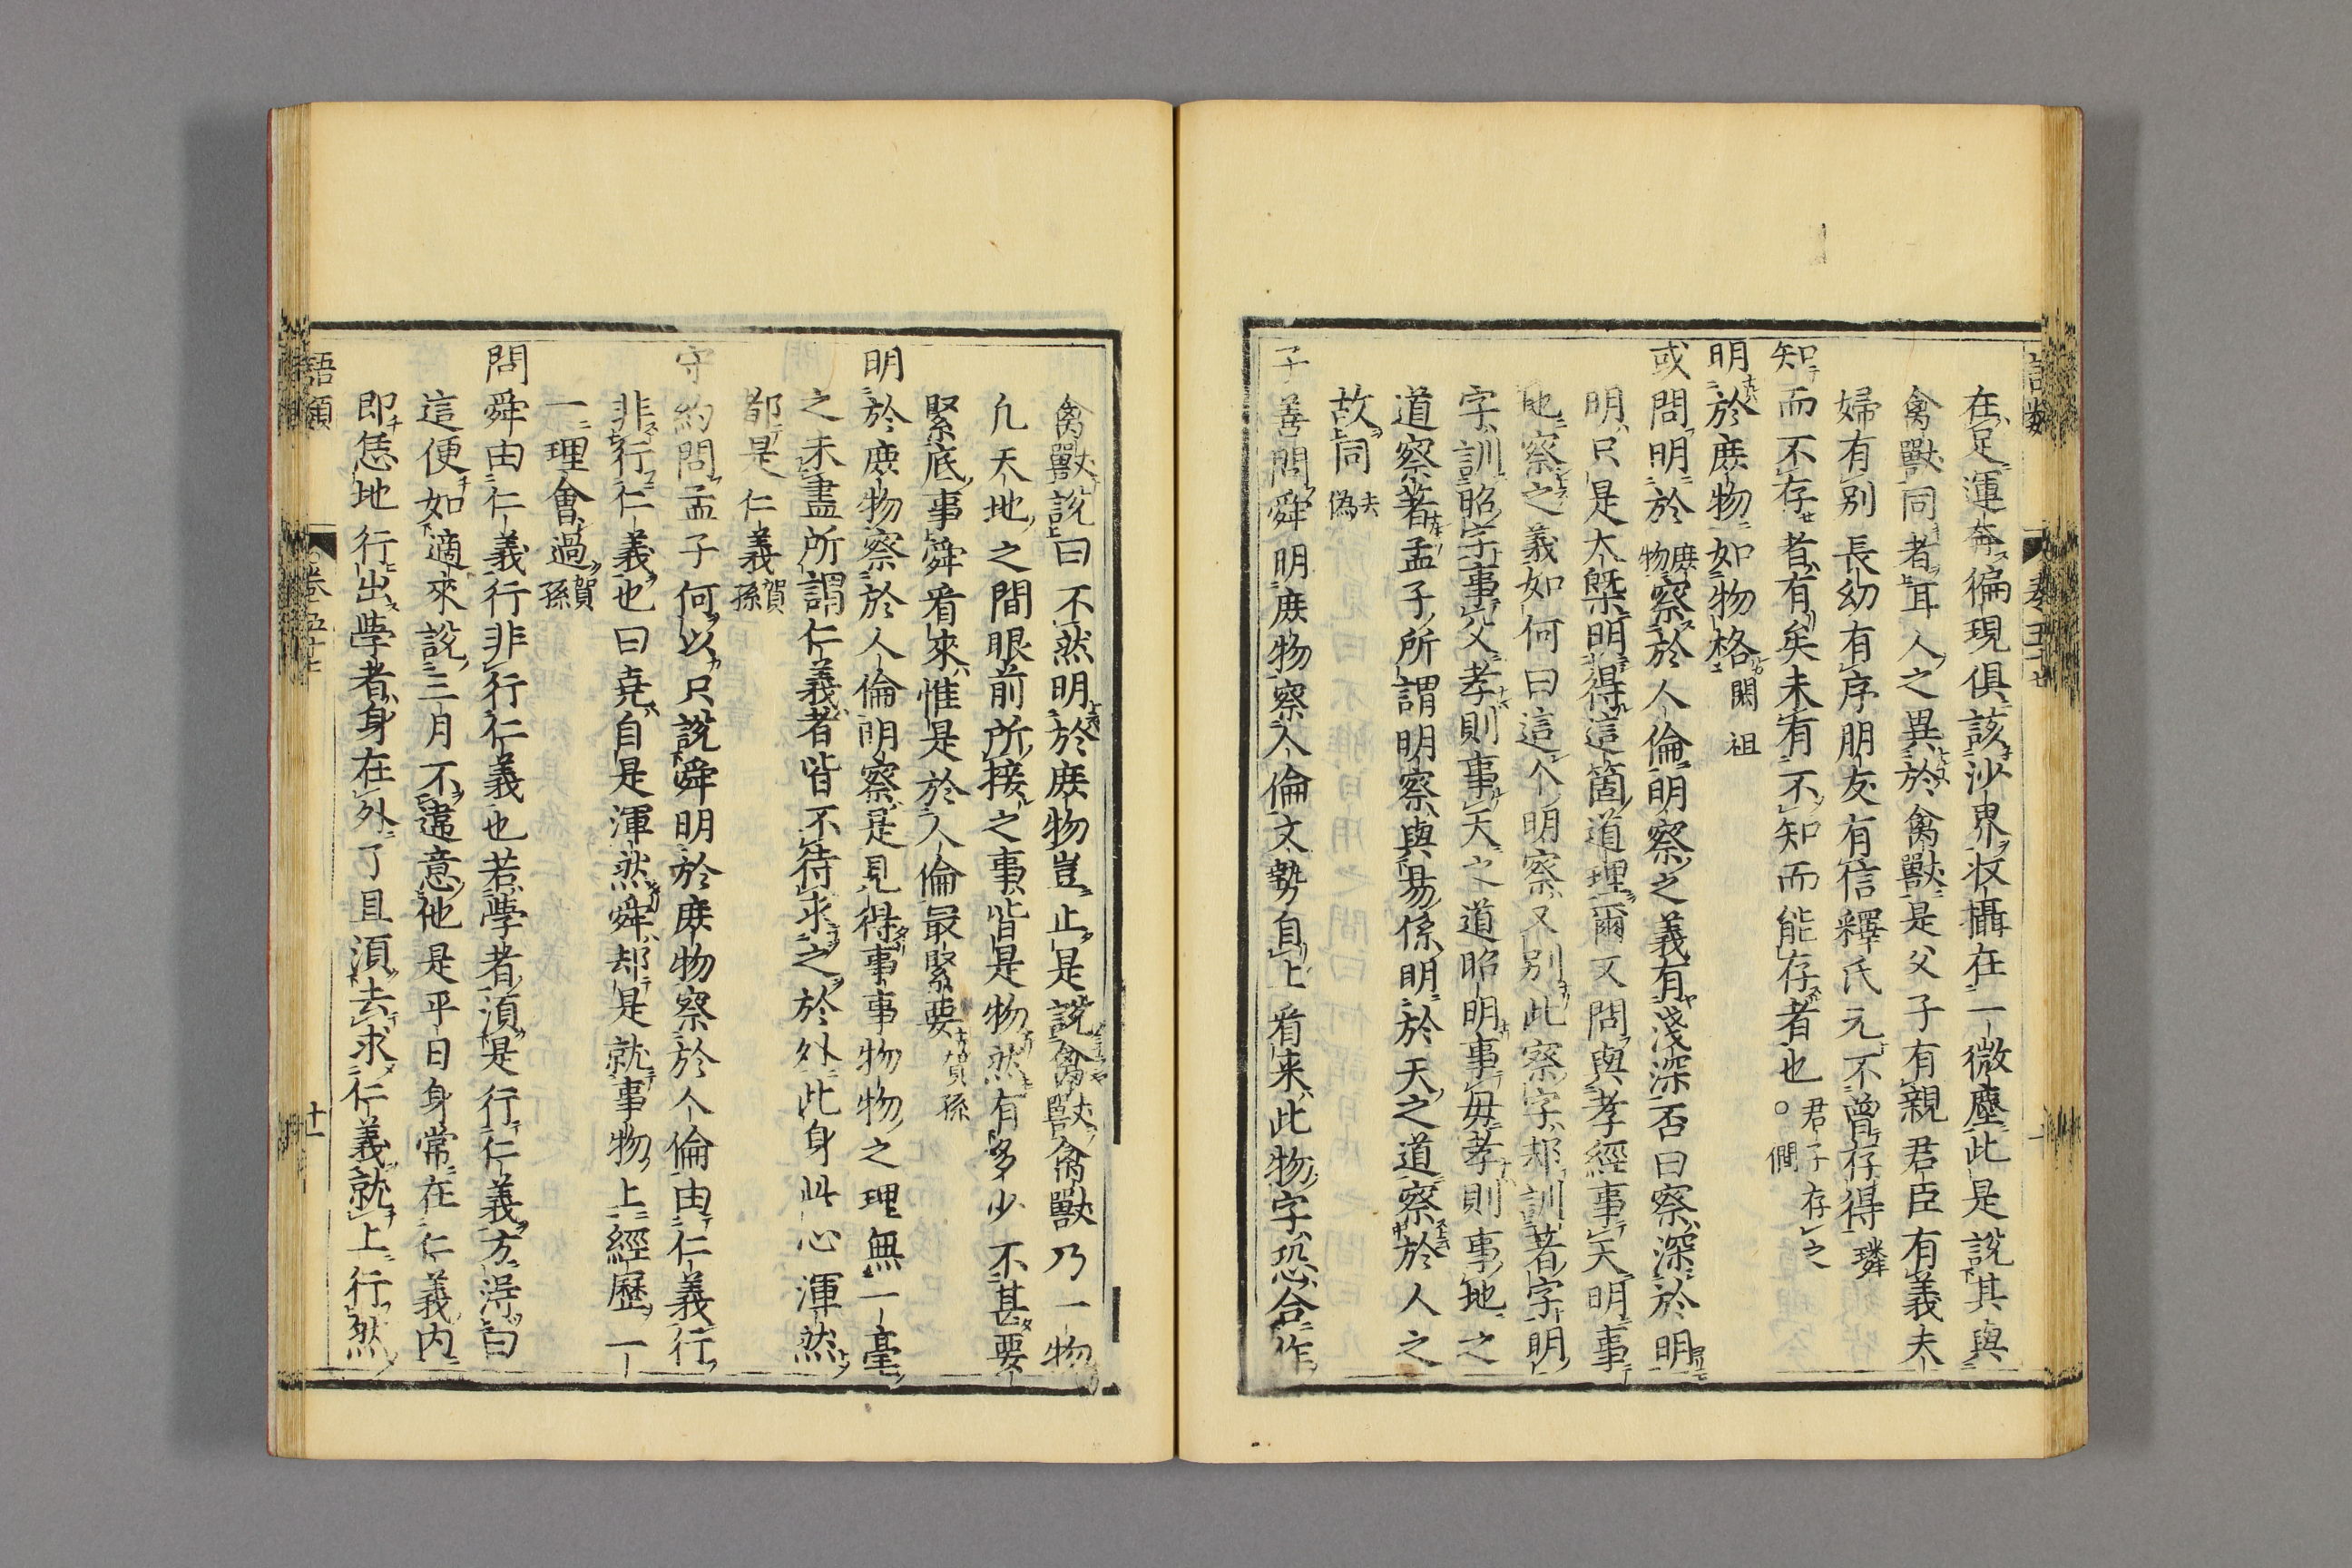 在足運奔徧現俱該沙界收攝在一微塵此是說其與
禽獸同者耳人之異於禽獸是父子有親君臣有義夫
婦有別長幼有序朋友有信釋氏元不曾存得璘
知而不存者有矣未有不知而能存者也。君子存之 僩
明於庶物如物格閎祖
或問明於庶物察於人倫明察之義有淺深否曰察深於明
明只是大槩明得這箇道理爾又問與孝經事天明事
地察之義如何曰這个明察又別此察字却訓著字明
字訓昭字事父孝則事天之道昭明事母孝則事地之
道察著孟子所謂明察與易係明於天之道察於人之
故同去偽
子善問舜明庶物察人倫文勢自上看来此物字恐合作
禽獸說曰不然明於庶物豈止是說禽獸禽獸乃一物
凡天地之間眼前所接之事皆是物然有多少不甚要
緊底事舜看來惟是於人倫最緊要賀孫
明於庶物察於人倫明察是見得事事物物之理無一毫
之未盡所謂仁義者皆不待求之於外此身此心渾然
都是仁義賀孫
守約問孟子何以只說舜明於庶物察於人倫由仁義行
非行仁義也曰堯自是渾然舜却是就事物上經歷一
一理會過賀孫
問舜由仁義行非行仁義也若學者須是行仁義方得曰
這便如適來說三月不違意他是平日身常在仁義內
即恁地行出學者身在外了且須去求仁義就上行然
語類 卷五十七 十一